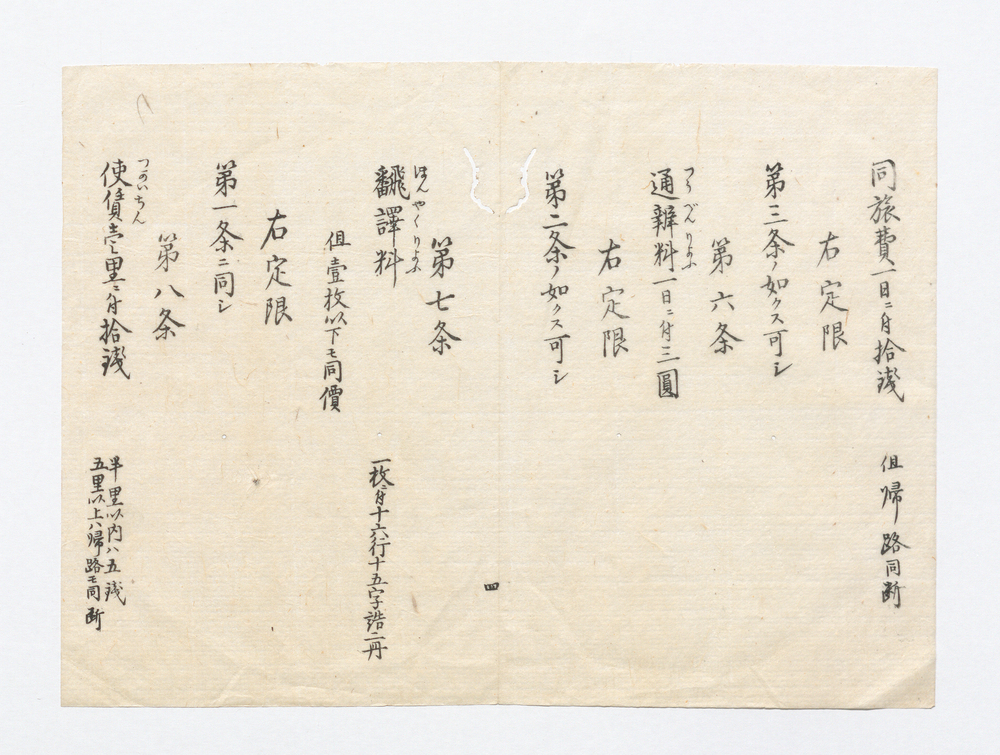 同旅費一日ニ付拾銭
但帰路同断
右定限
第三条ノ如クス可シ
第六条
通辨料一日ニ付三圓
つうべんりよふ
右定限
第二条ノ如クス可シ
第七条
飜譯料
ほんやくりよふ
一枚ニ付十六行十五字詰二円
但壹枚以下モ同價
右定限
第一条ニ同シ
第八条
使賃壱里ニ付拾銭
つかいちん
半里以内ハ五銭
五里以上ハ帰路モ同断
四